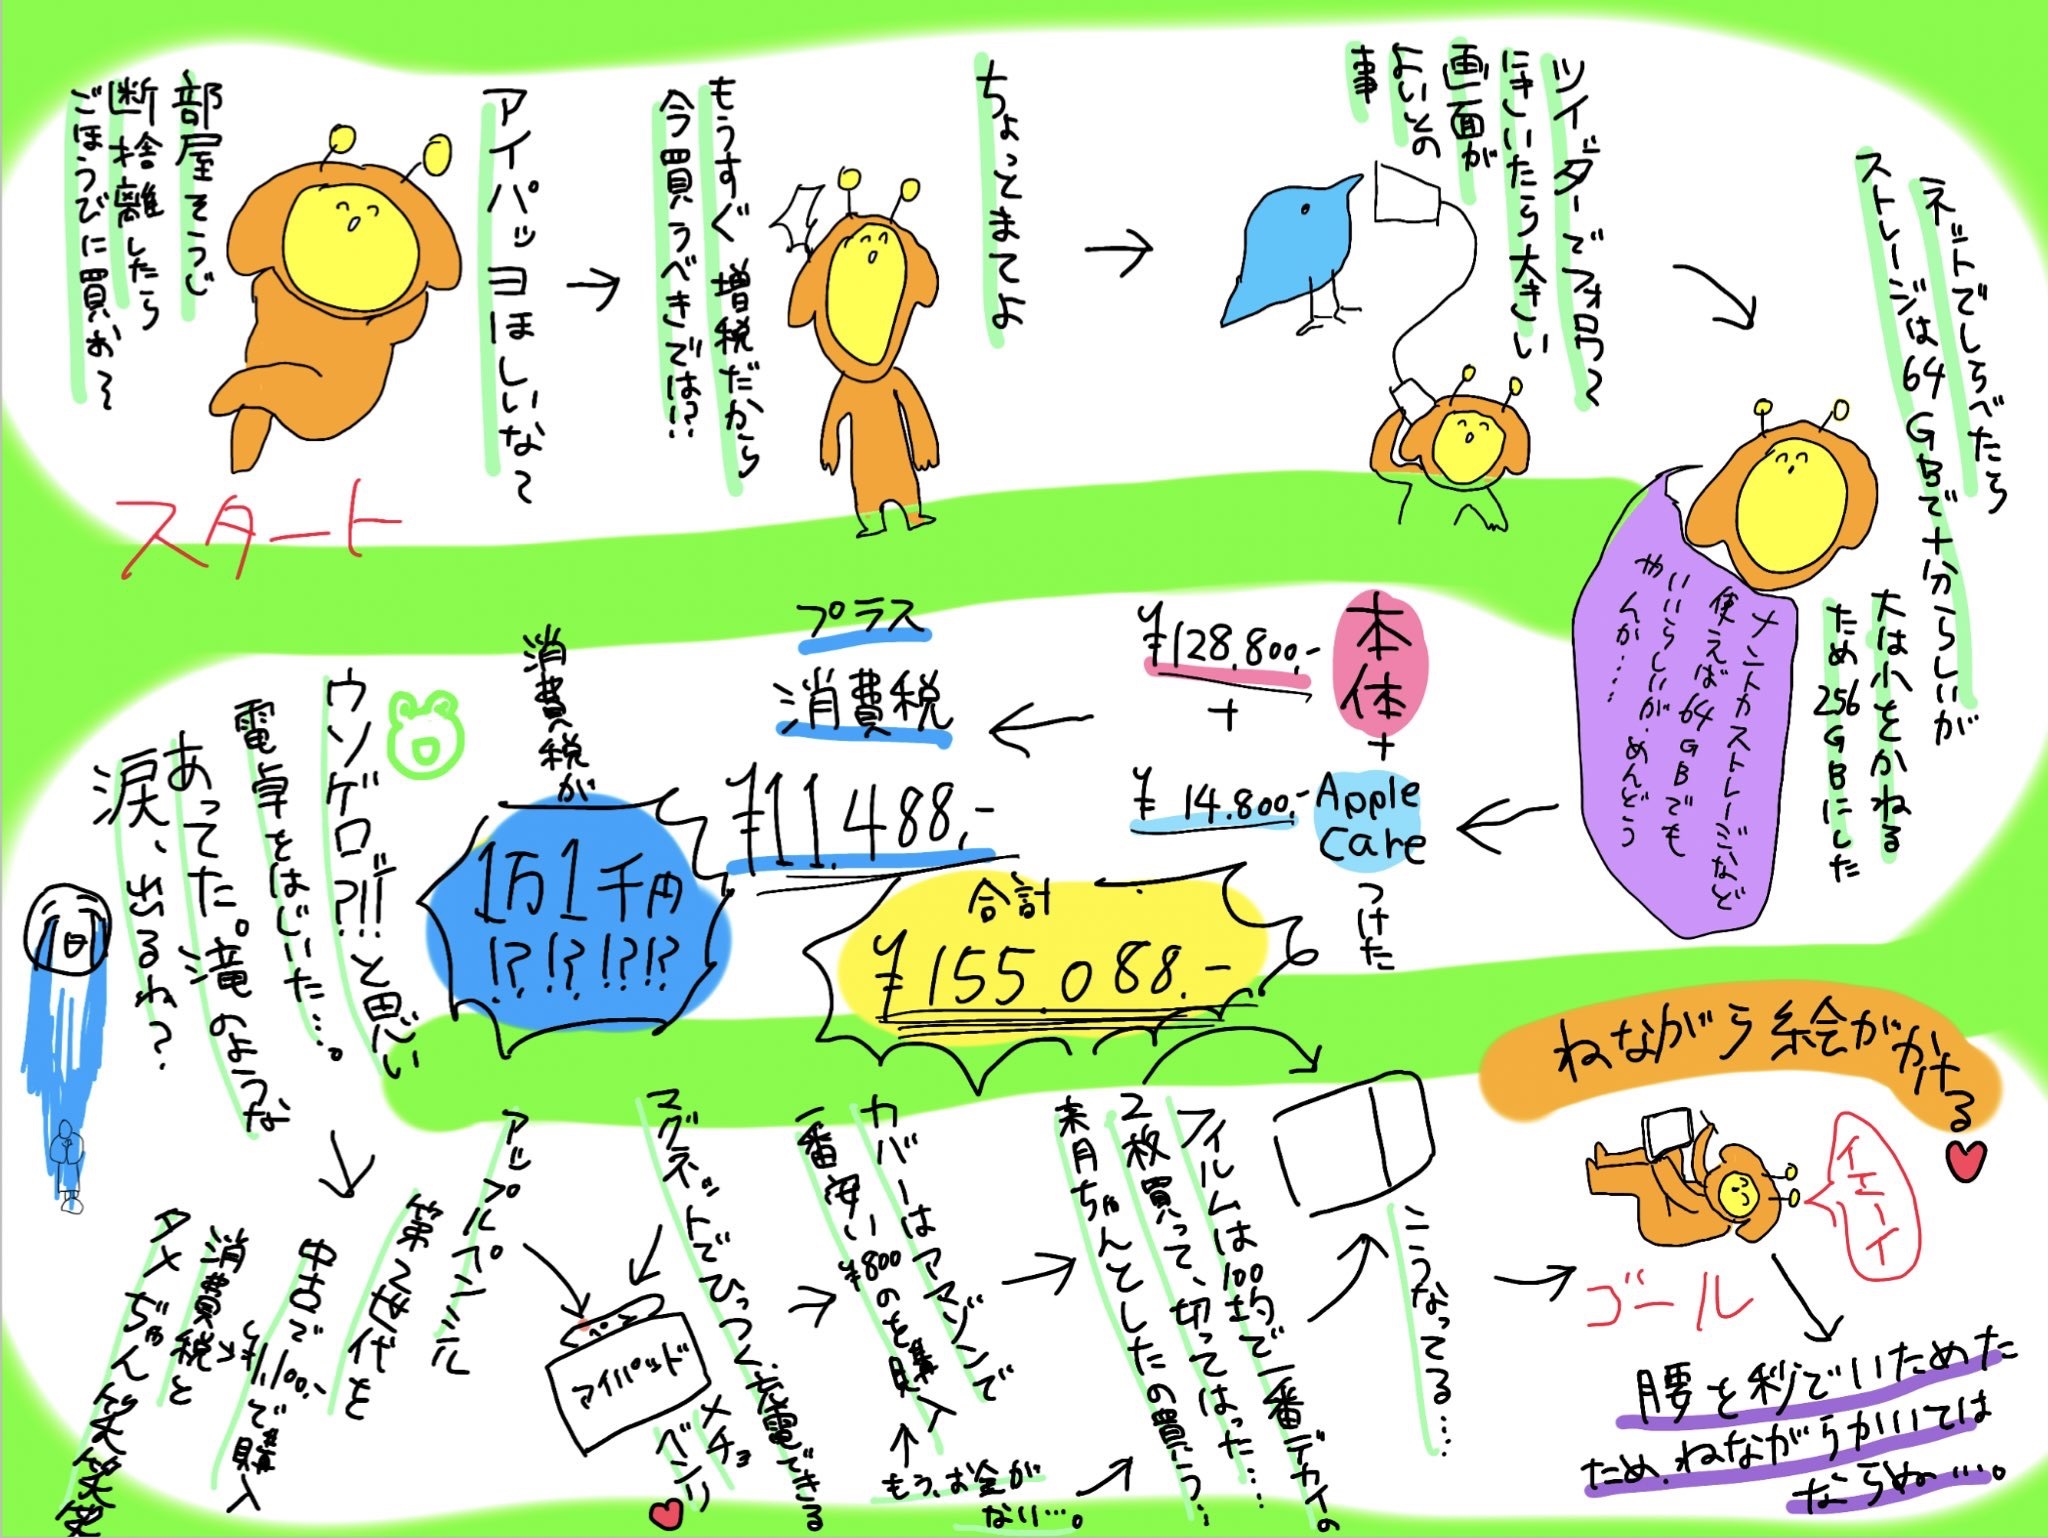 アイパッヨほしいなて
部屋そうじ
断捨離したら
ごほうびに買お〜
スタート
ちょっとまてよ
もうすぐ増税だから
今買うべきでは!?
ツイダーでフォロワ〜
にきいたら大きい
画面が
よいとの
事
ネットでしらべたら
ストレージは64GBで十分らしいが
大は小をかねる
ため256GBにした
ナントカストレージなど
使えば64GBでも
いいらしいが、めんどう
やんか……
本体
¥128.800.-
+
+
Apple
care
つけた
¥14.800.-
プラス
消費税
¥11.488.-
合計
¥155.088.-
消費税が
1万1千円
!?!?!?!?
ウソゲロ!?!!と思い
電卓をはじいた…。
あってた。滝のような
涙、出るね?
アップルペンシル
第2世代を
中古で¥11100.-で購入
消費税と
タメぢゃん笑笑笑笑
マグネットでひっつく、充電できる
メチョ
ベンリ
ペン
アイパッド
カバーはアマゾンで
一番安い¥800のを購入
もう、お金が
ない…。
フィルムは100均で一番デカイの
2枚買って、切ってはった…
来月ちゃんとしたの買う…
こうなってる…
ねながら絵がかける
イエーイ
ゴール
腰を秒でいためた
ため、ねながらかいては
ならぬ…。